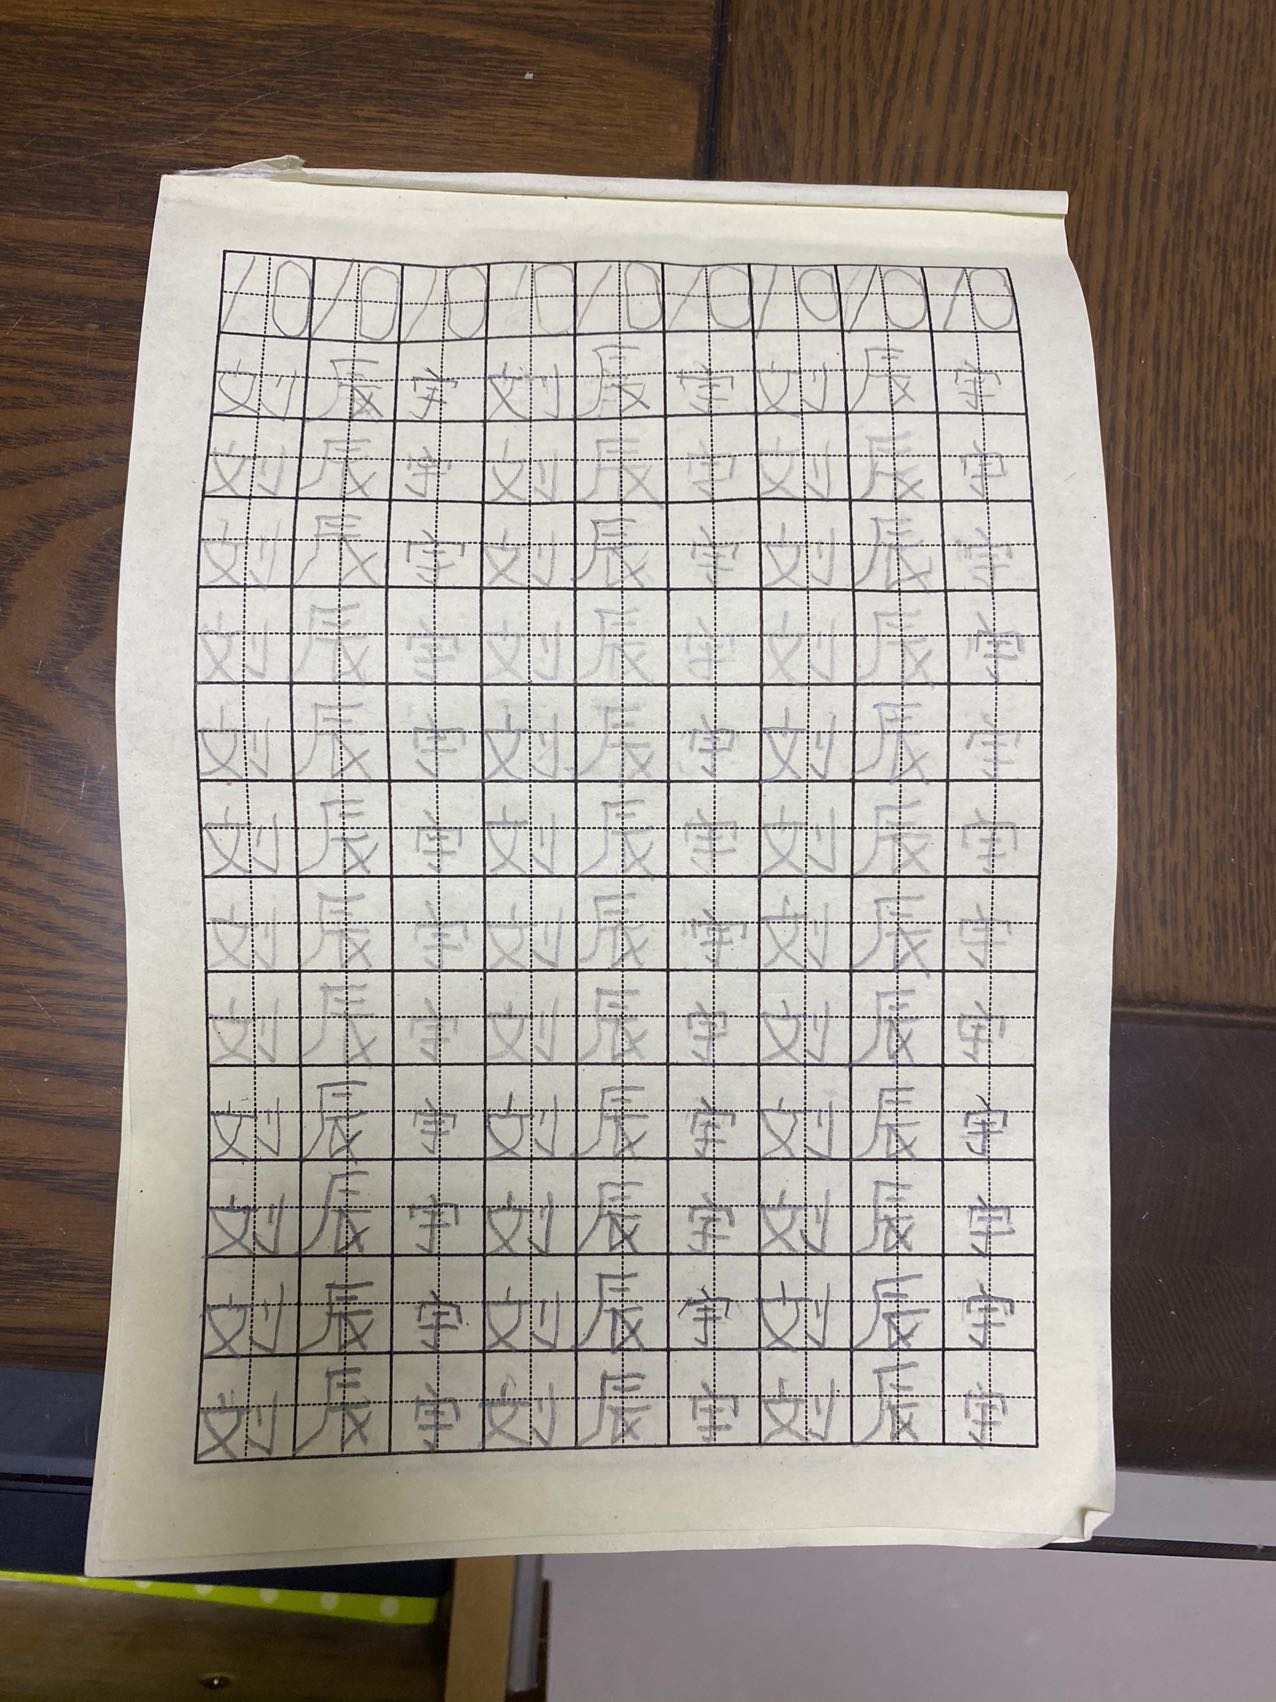 10 10 10 10 10 10 10 10 10
刘 辰 宇 刘 辰 宇 刘 辰 宇
刘 辰 宇 刘 辰 宇 刘 辰 宇
刘 辰 宇 刘 辰 宇 刘 辰 宇
刘 辰 宇 刘 辰 宇 刘 辰 宇
刘 辰 宇 刘 辰 宇 刘 辰 宇
刘 辰 宇 刘 辰 宇 刘 辰 宇
刘 辰 宇 刘 辰 宇 刘 辰 宇
刘 辰 宇 刘 辰 宇 刘 辰 宇
刘 辰 宇 刘 辰 宇 刘 辰 宇
刘 辰 宇 刘 辰 宇 刘 辰 宇
刘 辰 宇 刘 辰 宇 刘 辰 宇
刘 辰 宇 刘 辰 宇 刘 辰 宇